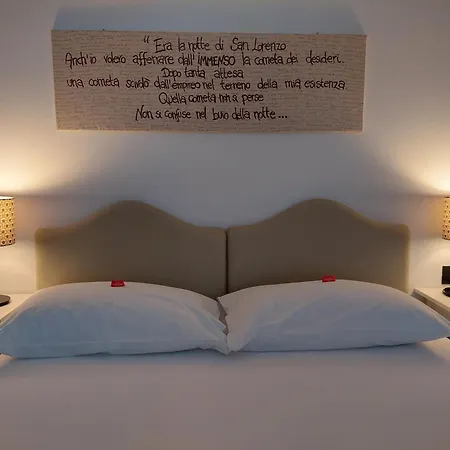 " Era la notte di San Lorenzo
Anch'io volevo afferrare dall'IMMENSO la cometa dei desideri.
Dopo tanta attesa
una cometa scivolò dall'empireo nel terreno della mia esistenza.
Quella cometa non si perse
Non si confuse nel buio della notte...